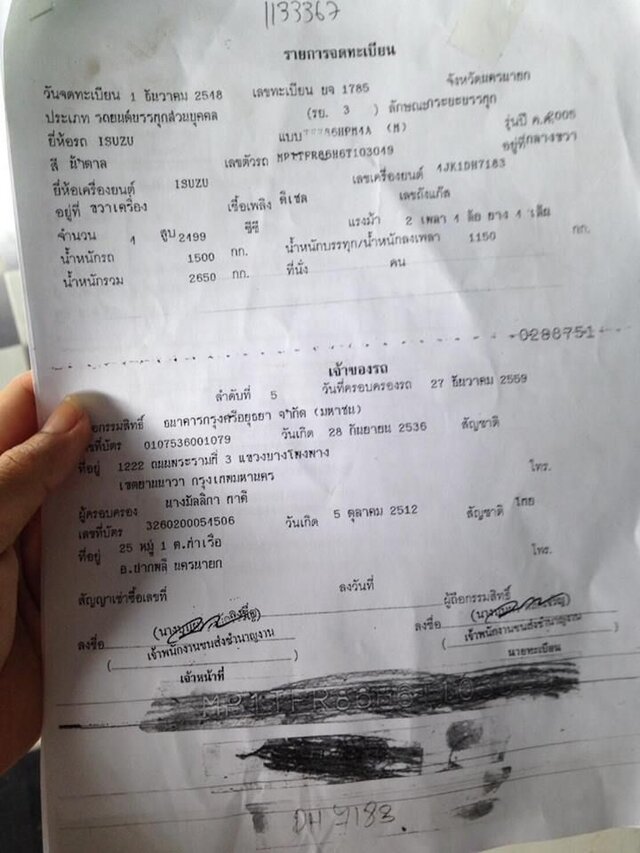 1133367
รายการจดทะเบียน
วันจดทะเบียน 1 ธันวาคม 2548 เลขทะเบียน ยจ 1785 จังหวัดนครนายก
ประเภท รถยนต์บรรทุกส่วนบุคคล (รย. 3 ) ลักษณะกระบะบรรทุก
ยี่ห้อรถ ISUZU แบบ (M) รุ่นปี ค.ศ.2005
สี น้ำตาล เลขตัวรถ MP1TFR86H6T103049 อยู่ที่ กลางขวา
ยี่ห้อเครื่องยนต์ ISUZU เลขเครื่องยนต์ 4JK1DH7183
อยู่ที่ ขวาเครื่อง เชื้อเพลิง ดีเซล เลขถังแก๊ส
จำนวน 4 สูบ 2499 ซีซี แรงม้า 2 เพลา 4 ล้อ ยาง 4 เส้น
น้ำหนักรถ 1500 กก. น้ำหนักบรรทุก/น้ำหนักลงเพลา 1150 กก.
น้ำหนักรวม 2650 กก. ที่นั่ง คน
0288751
เจ้าของรถ
ลำดับที่ 5 วันที่ครอบครองรถ 27 ธันวาคม 2559
ผู้ถือกรรมสิทธิ์ ธนาคารกรุงศรีอยุธยา จำกัด (มหาชน)
เลขที่บัตร 0107536001079 วันเกิด 28 กันยายน 2536 สัญชาติ
ที่อยู่ 1222 ถนนพระรามที่ 3 แขวงบางโพงพาง
เขตยานนาวา กรุงเทพมหานคร โทร.
ผู้ครอบครอง นางมัลลิกา
เลขที่บัตร 3260200054506 วันเกิด 5 ตุลาคม 2512 สัญชาติ ไทย
ที่อยู่ 25 หมู่ 1 ต.ท่าเรือ
อ.ปากพลี นครนายก โทร.
สัญญาเช่าซื้อเลขที่ ลงวันที่ ผู้ถือกรรมสิทธิ์
ลงชื่อ ลงชื่อ
( เจ้าพนักงานขนส่งชำนาญงาน ) ( เจ้าพนักงานขนส่งชำนาญงาน )
เจ้าหน้าที่ นายทะเบียน
DH 7183